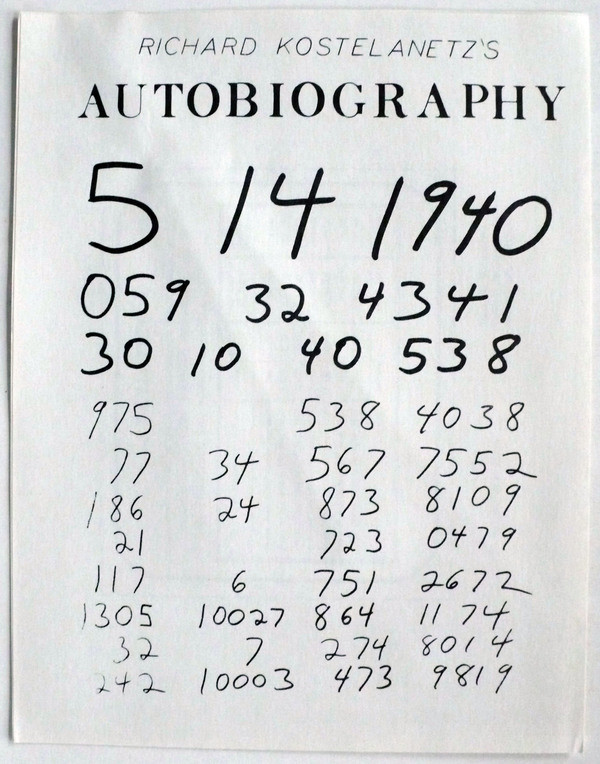 RICHARD KOSTELANETZ'S
AUTOBIOGRAPHY
5 14 1940
059 32 4341
30 10 40 538
975 538 4038
77 34 567 7552
186 24 873 8109
21 723 0479
117 6 751 2672
1305 10027 864 1174
32 7 274 8014
242 10003 473 9819